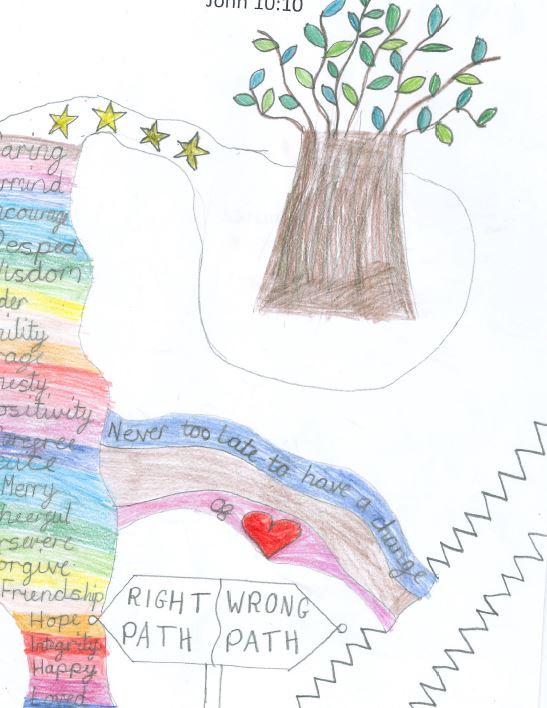 John 10:10
aring
rmind
ncourage
Desped
Wisdom
der
ility
rage
nesty
ositivity
eace
Merry
heerful
rsevere
orgive
Friendship
Hope
Integrity
Happy
Loved
Never too late to have a change
of
RIGHT PATH
WRONG PATH